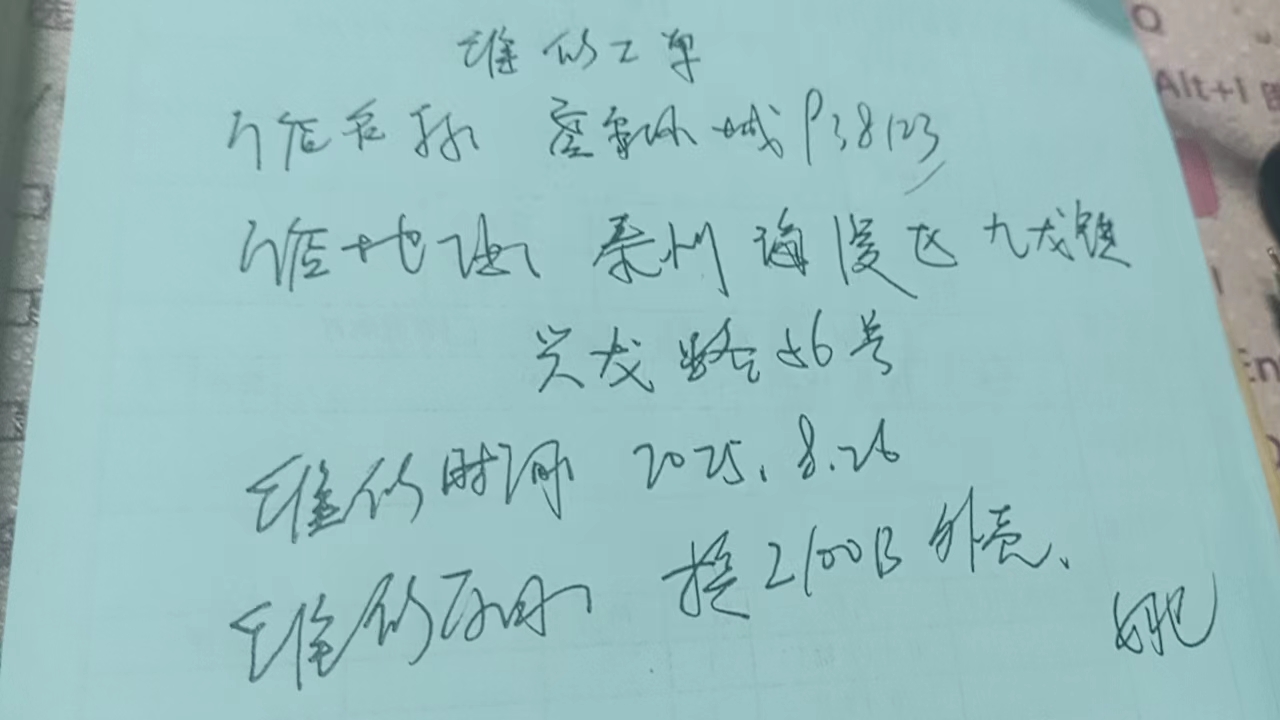 维修工单
门店名称 壹氧环城 P38123
门店地址 泰州海陵区九龙镇
兴龙路56号
维修时间 2025.8.26
维修原因 换2100B外壳、
Alt+
En